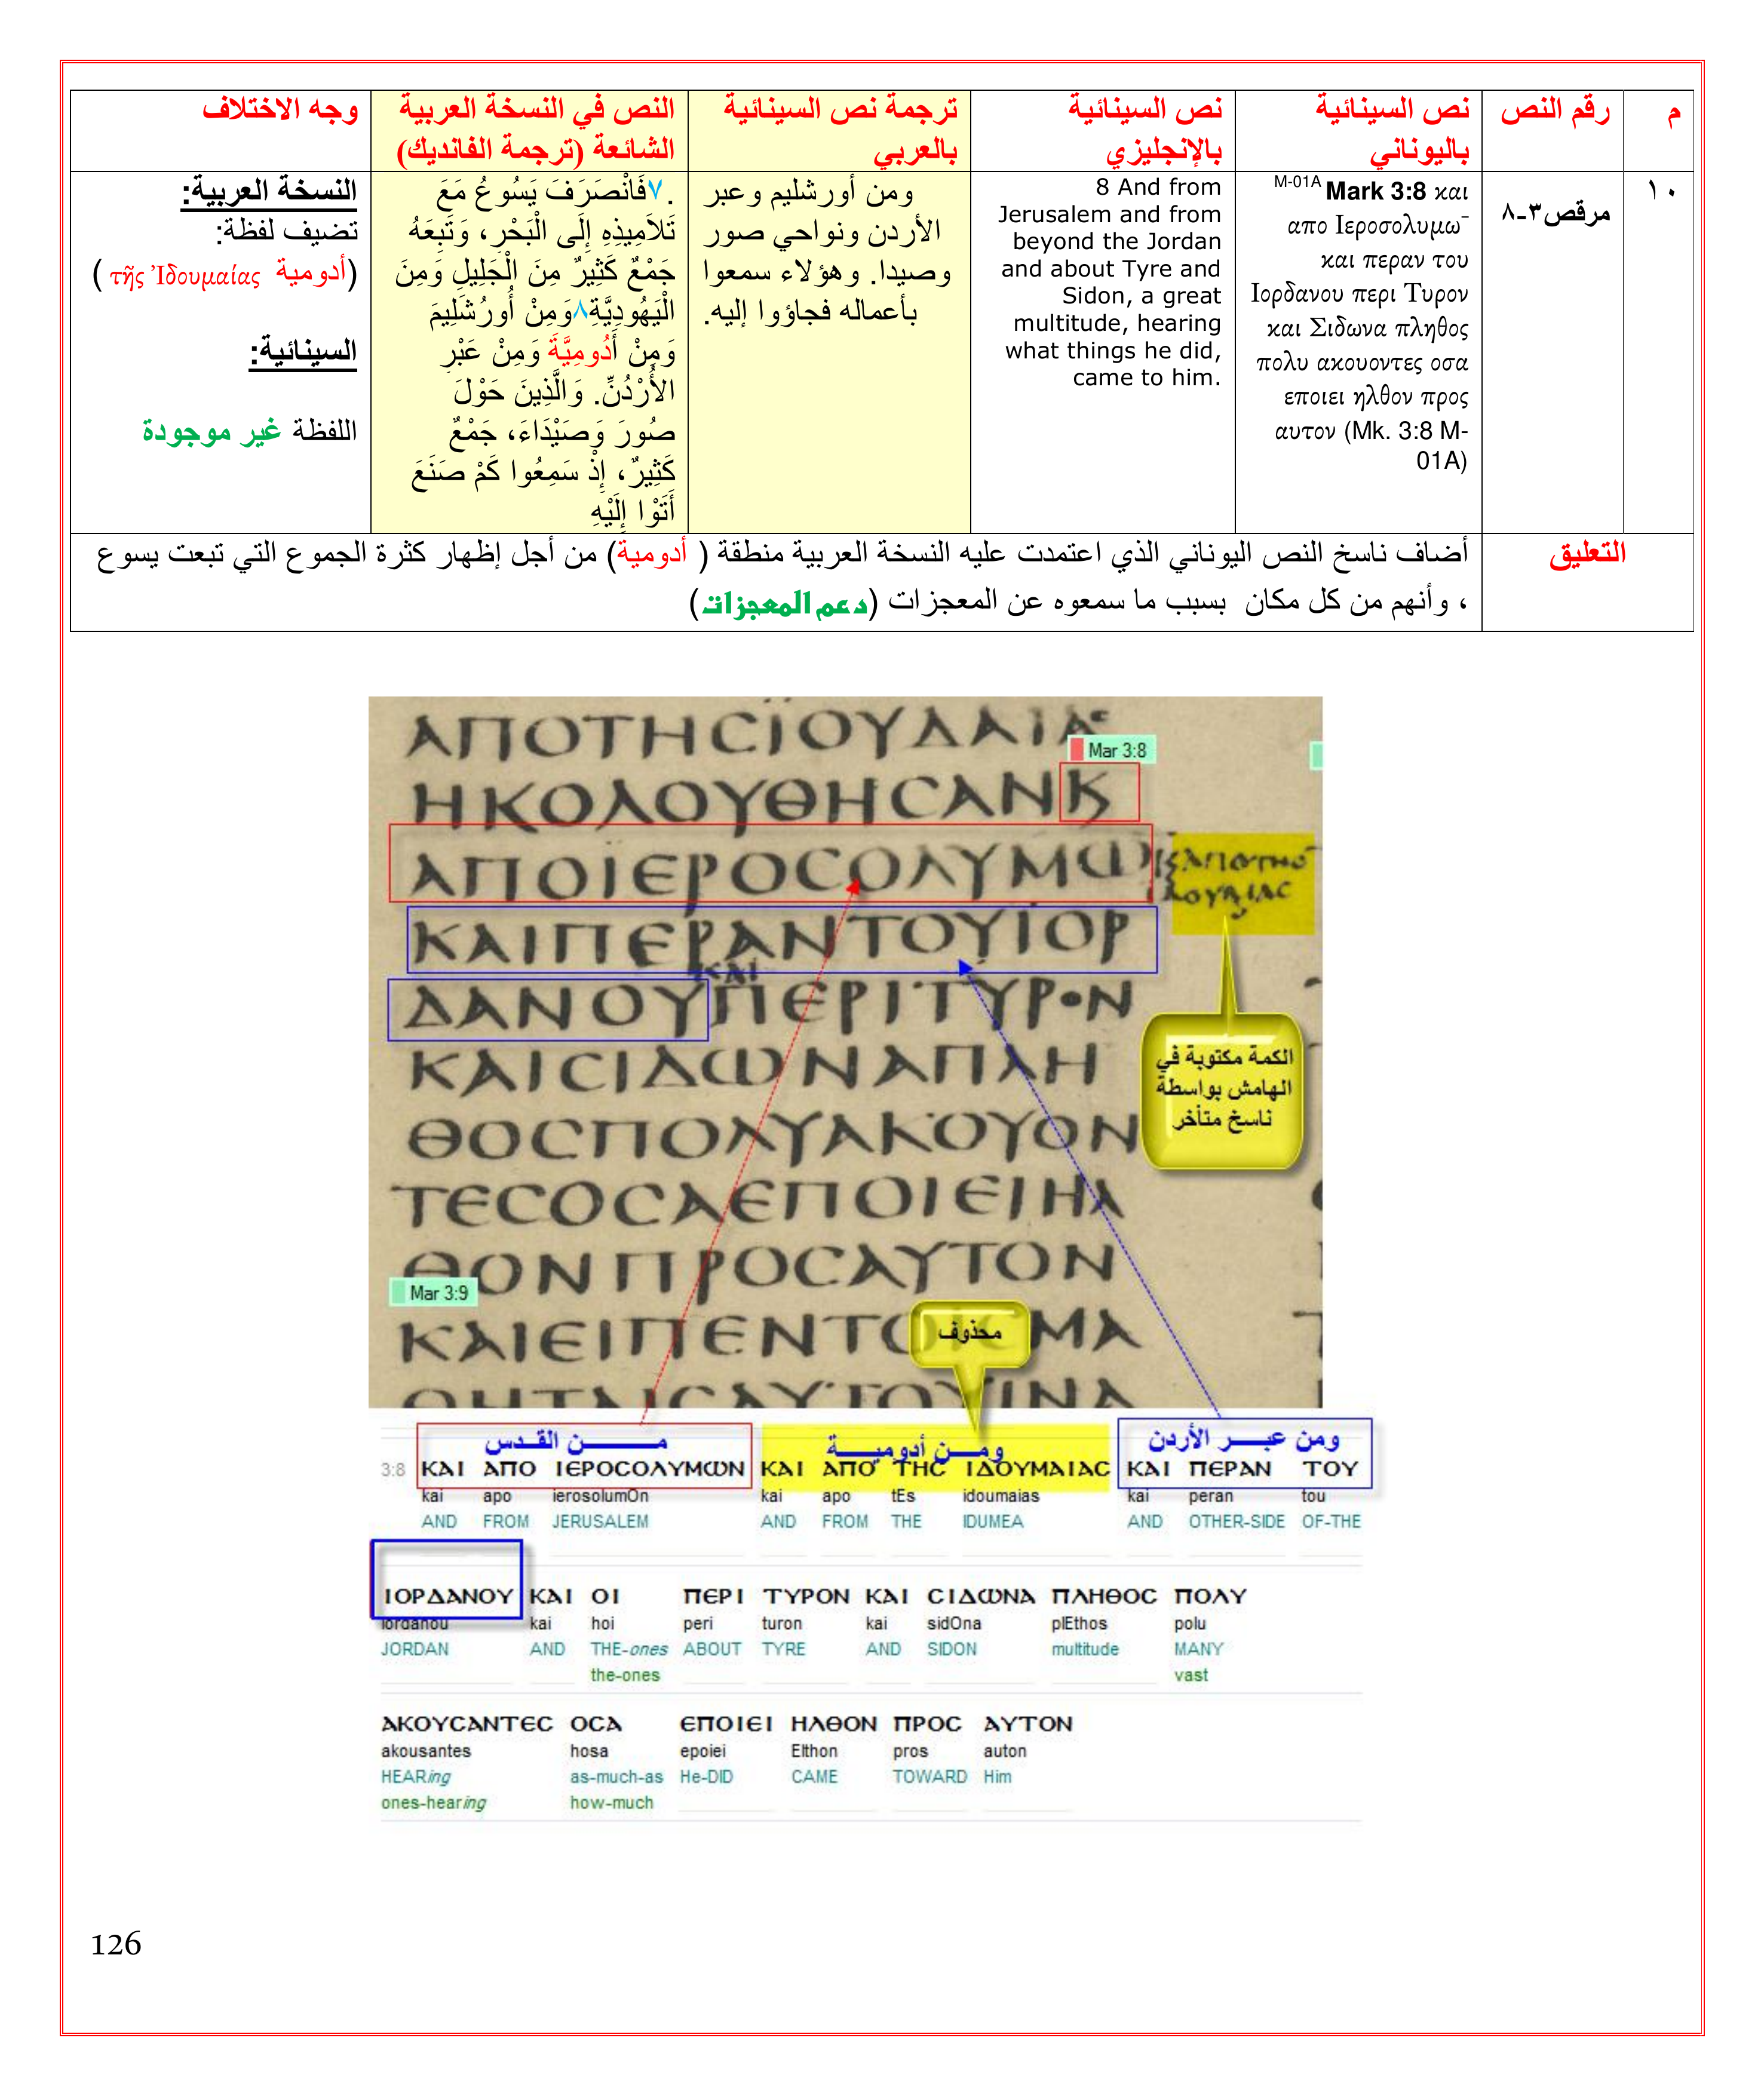 م
رقم النص
نص السينائية
باليوناني
نص السينائية
بالإنجليزي
ترجمة نص السينائية
بالعربي
النص في النسخة العربية
الشائعة (ترجمة الفانديك)
وجه الاختلاف
١٠
مرقص٣-٨
M-01A Mark 3:8 και
απο Ιεροσολυμω¯
και περαν του
Ιορδανου περι Τυρον
και Σιδωνα πληθος
πολυ ακουοντες οσα
εποιει ηλθον προς
αυτον (Mk. 3:8 M-
01A)
8 And from
Jerusalem and from
beyond the Jordan
and about Tyre and
Sidon, a great
multitude, hearing
what things he did,
came to him.
ومن أورشليم وعبر
الأردن ونواحي صور
وصيدا. وهؤلاء سمعوا
بأعماله فجاؤوا إليه.
.٧فَانْصَرَفَ يَسُوعُ مَعَ
تَلاَمِيذِهِ إِلَى الْبَحْرِ، وَتَبِعَهُ
جَمْعٌ كَثِيرٌ مِنَ الْجَلِيلِ وَمِنَ
الْيَهُودِيَّةِ٨وَمِنْ أُورُشَلِيمَ
وَمِنْ أَدُومِيَّةَ وَمِنْ عَبْرِ
الأُرْدُنِّ. وَالَّذِينَ حَوْلَ
صُورَ وَصَيْدَاءَ، جَمْعٌ
كَثِيرٌ، إِذْ سَمِعُوا كَمْ صَنَعَ
أَتَوْا إِلَيْهِ
النسخة العربية:
تضيف لفظة:
(أدومية τῆς Ἰδουμαίας )
السينائية:
اللفظة غير موجودة
التعليق
أضاف ناسخ النص اليوناني الذي اعتمدت عليه النسخة العربية منطقة ( أدومية) من أجل إظهار كثرة الجموع التي تبعت يسوع
، وأنهم من كل مكان بسبب ما سمعوه عن المعجزات (دعم المعجزات)
ΑΠΟΤΗCΪΟΥΔΑΙΑC
Mar 3:8
ΗΚΟΛΟΥΘΗCΑΝΚ
ΑΠΟΙΕΡΟCΟΛΥΜΩ
ΚΑΠΟΤΗC
ΔΟΥΜΑΙΑC
ΚΑΙΠΕΡΑΝΤΟΥΪΟΡ
ΚΑΙ
ΔΑΝΟΥΠΕΡΙΤΥΡΟΝ
ΚΑΙCΙΔΩΝΑΠΛΗ
ΘΟCΠΟΛΥΑΚΟΥΟΝ
ΤΕCΟCΑΕΠΟΙΕΙΗΛ
ΘΟΝΠΡΟCΑΥΤΟΝ
Mar 3:9
ΚΑΙΕΙΠΕΝΤΟΙCΜΑ
الكمة مكتوبة في
الهامش بواسطة
ناسخ متأخر
محذوف
من القدس
ومن أدومية
ومن عبر الأردن
3:8 ΚΑΙ ΑΠΟ ΙΕΡΟCΟΛΥΜΩΝ ΚΑΙ ΑΠΟ ΤΗC ΙΔΟΥΜΑΙΑC ΚΑΙ ΠΕΡΑΝ ΤΟΥ
kai apo ierosolumOn kai apo tEs idoumaias kai peran tou
AND FROM JERUSALEM AND FROM THE IDUMEA AND OTHER-SIDE OF-THE
ΙΟΡΔΑΝΟΥ ΚΑΙ ΟΙ ΠΕΡΙ ΤΥΡΟΝ ΚΑΙ CΙΔΩΝΑ ΠΛΗΘΟC ΠΟΛΥ
iordanou kai hoi peri turon kai sidOna plEthos polu
JORDAN AND THE-ones ABOUT TYRE AND SIDON multitude MANY
the-ones vast
ΑΚΟΥCΑΝΤΕC ΟCΑ ΕΠΟΙΕΙ ΗΛΘΟΝ ΠΡΟC ΑΥΤΟΝ
akousantes hosa epoiei Elthon pros auton
HEARing as-much-as He-DID CAME TOWARD Him
ones-hearing how-much
126